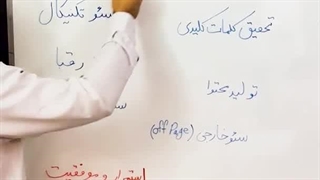 تحقیق کلمات کلیدی
سئو تکنیکال
رقبا
تولید محتوا
سئو خارجی (off Page)
استمرار و موفقیت